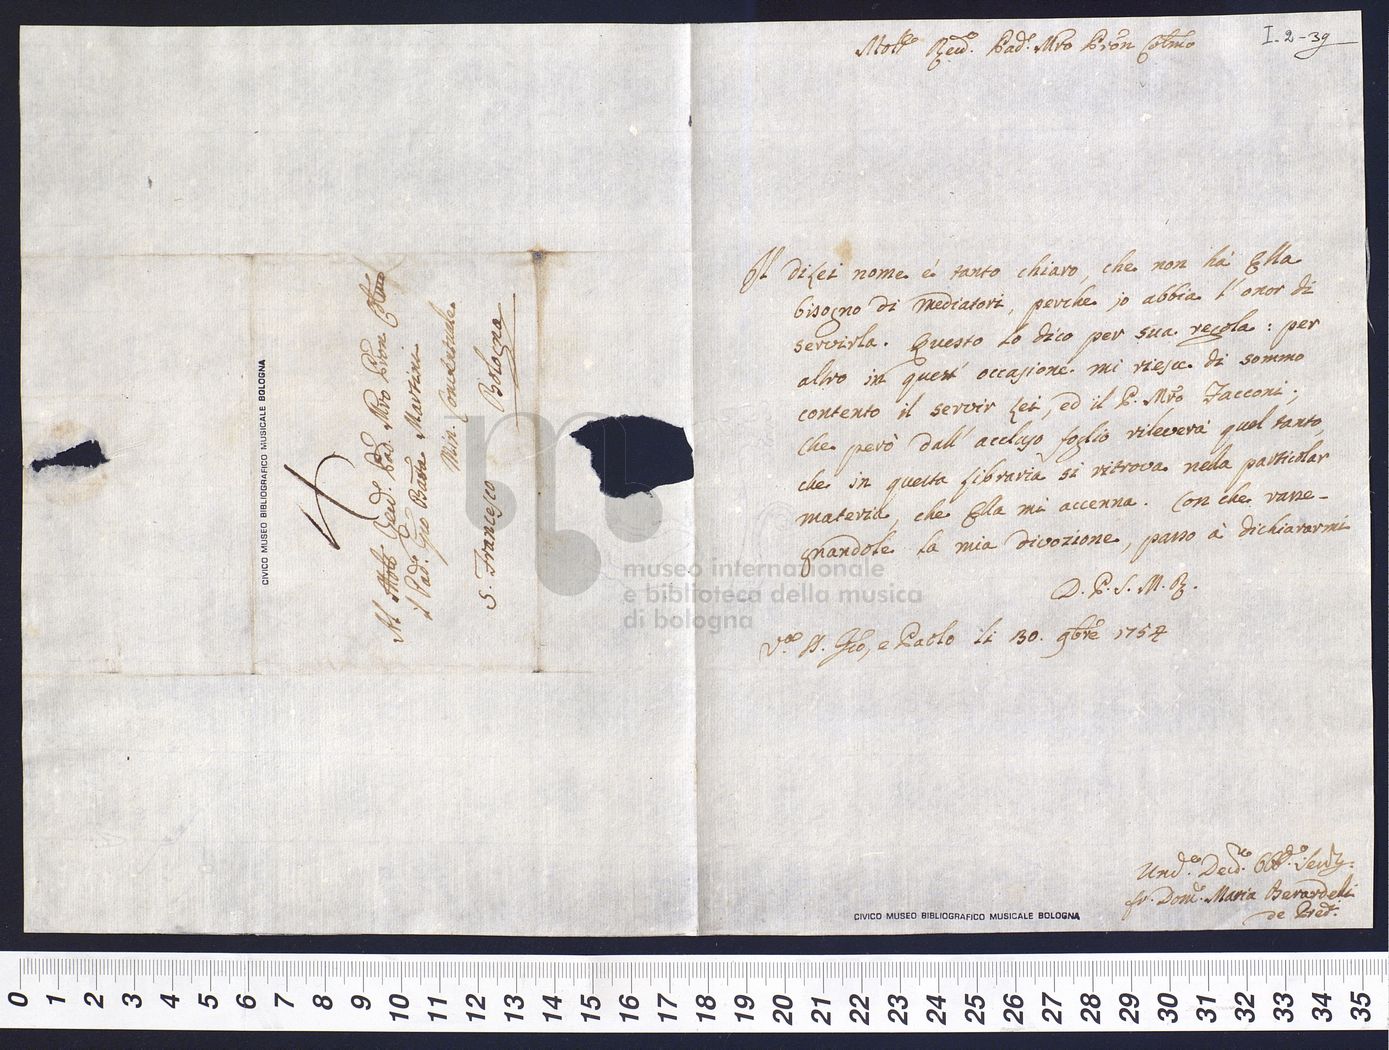 I-2-39
Molto Revdo. Padre Mro Pron Colmo
Il di Lei nome è tanto chiaro, che non hà Ella
bisogno di Mediatori, perche io abbia l'onor di
servirla. Questo lo dico per sua regola: per
altro in quest' occasione mi riesce di sommo
contento il servir Lei, ed il P. Mro Facconi;
che però dall' accluso foglio rileverà quel tanto
che in questa Libraria si ritrova nella particolar
materia, che Ella mi accenna. Con che rasse-
gnandole la mia divozione, passo à dichiararmi
D. P. S. M. R.
Va. SS. Gio, e Paolo li 30. 9bre 1754
Umo. Devo. Obbmo. Servre.
fr. Domo. Maria Berardelli
de Pred.
Al Molto Revdo. Padre Mro Pron Colmo
il Padre Gio Batta Martini
Min. Conventuale
S. Francesco Bologna
CIVICO MUSEO BIBLIOGRAFICO MUSICALE BOLOGNA
CIVICO MUSEO BIBLIOGRAFICO MUSICALE BOLOGNA
museo internazionale
e biblioteca della musica
di bologna
0 1 2 3 4 5 6 7 8 9 10 11 12 13 14 15 16 17 18 19 20 21 22 23 24 25 26 27 28 29 30 31 32 33 34 35